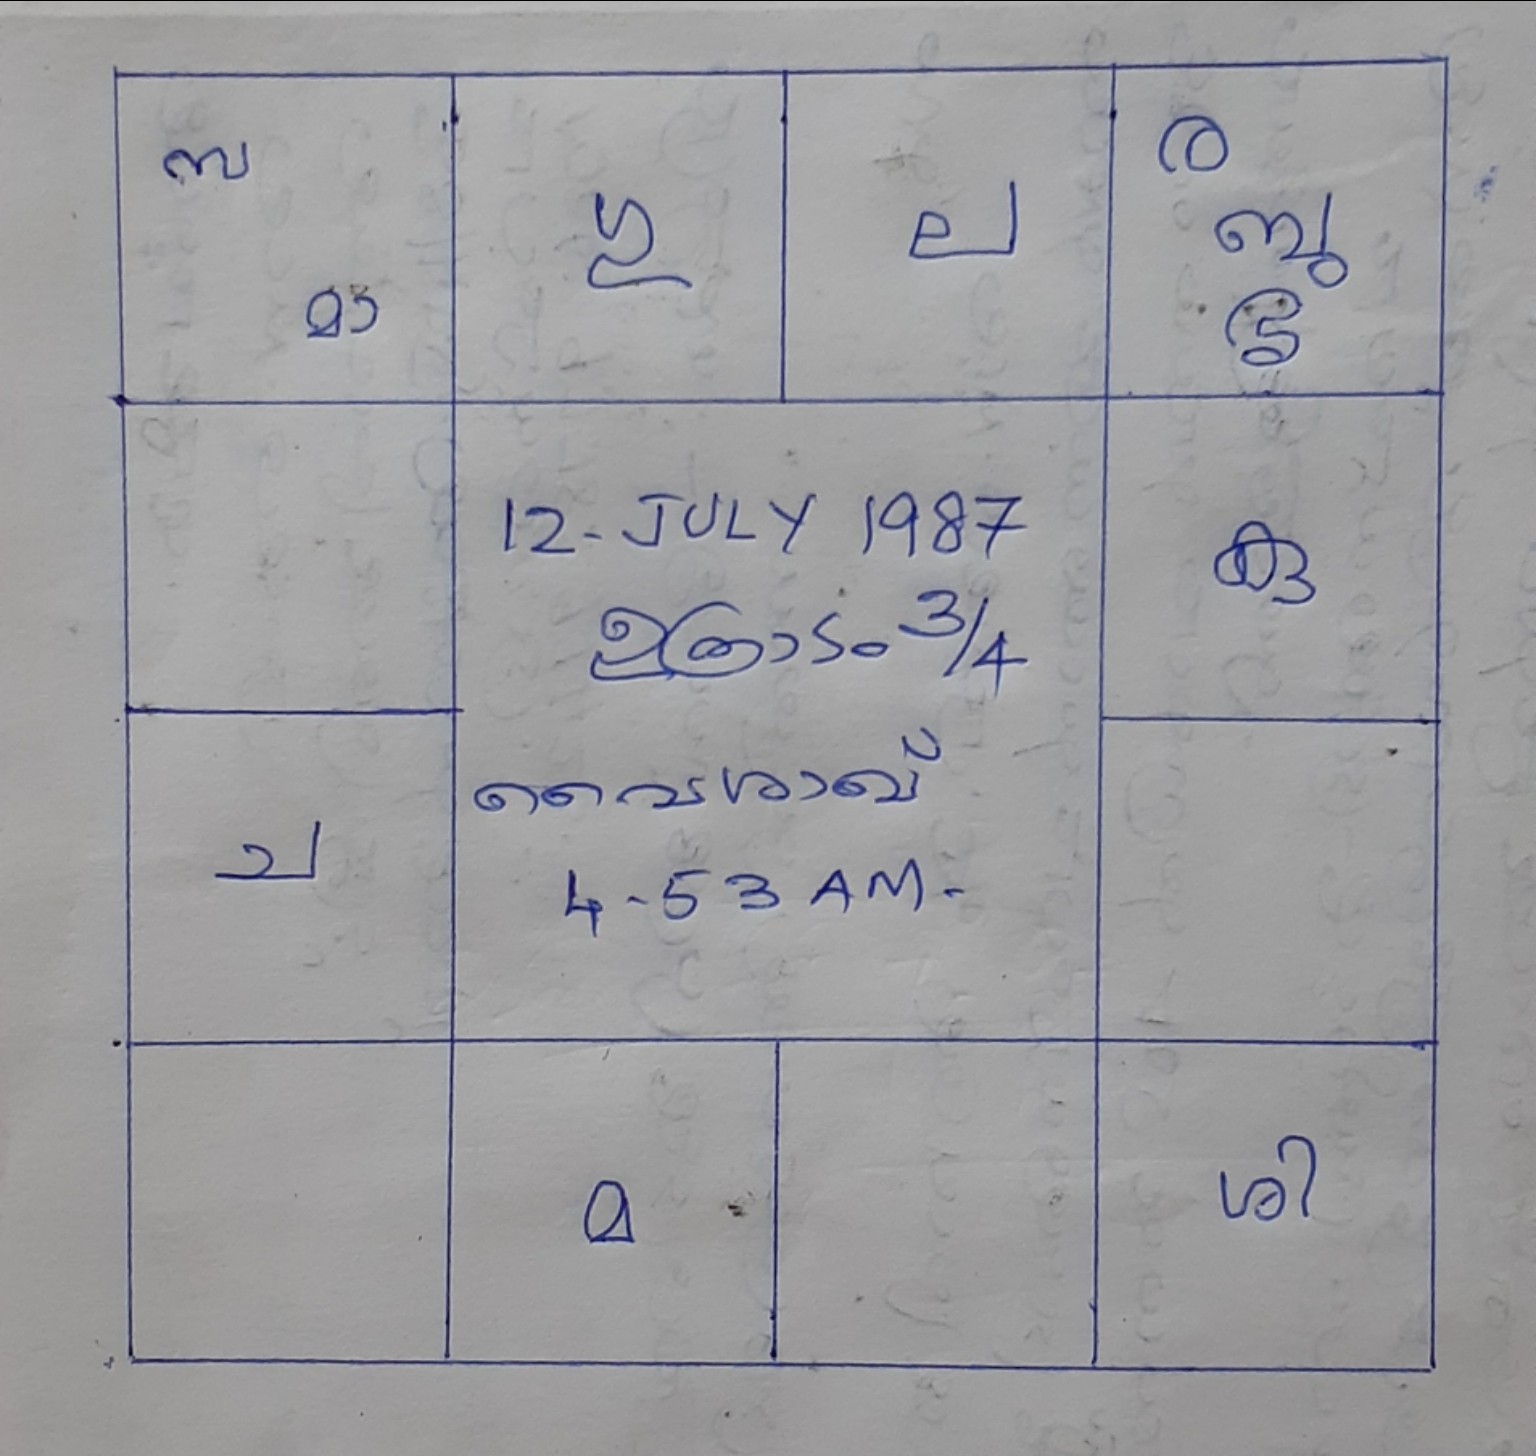 സ
മാ
ഗു
ല
ര
ബു
ഭൃ
12-JULY 1987
ഉത്രാടം 3/4
കു
വൈശാഖ്
4-53 AM-
ച
മ
ശി